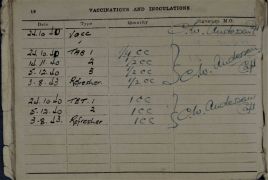 14 VACCINATIONS AND INOCULATIONS
Date Type Quantity M.O.
24.10.40 Vacc C.W. Anderson
24.10.40 TAB 1 1/4 cc
14.11.40 2 1/2 cc
5.12.40 3 1/2 cc C.W. Anderson
3.8.43 Refresher 1/2 cc
24.10.40 T.B.T. 1 1 cc
5.12.40 2 1 cc C.W. Anderson
3.8.43 Refresher 1 cc